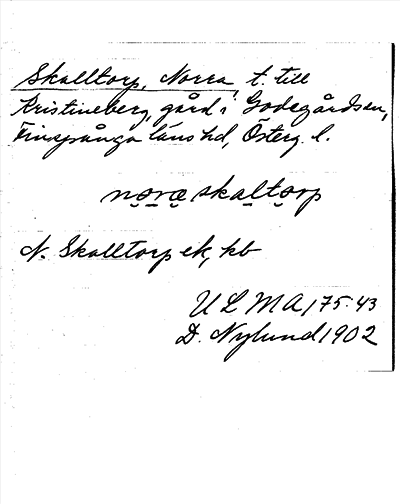 Skalltorp, Norra, t. till
Kristineberg, gård i Godegårdsen,
Finspånga läns hd, Österg. l.
nọrạ skaltọrp
N. Skalltorp ek, kb
ULMA 175:43
D. Nylund 1902